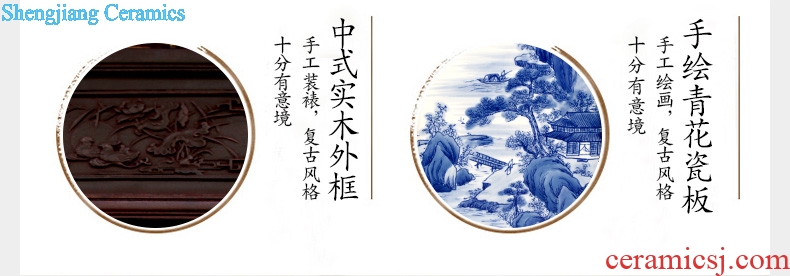 Shengjiang Ceramics
中式实木外框
手工装裱，复古风格
十分有意境
手绘青花瓷板
手工绘画，复古风格
十分有意境
ceramicsj.com